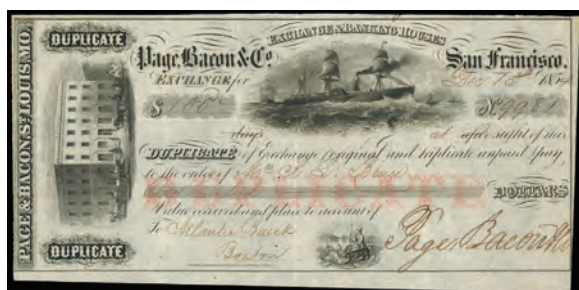 PAGE & BACON, ST. LOUIS, MO.
DUPLICATE
EXCHANGE & BANKING HOUSES
Page, Bacon & Co. San Francisco.
EXCHANGE for Dec 1854
$100 No. 9981
days at after sight of this
DUPLICATE of Exchange (original and triplicate unpaid) pay
to the order of
DUPLICATE
DOLLARS
Value received and place to account of
To Atlantic Bank
Boston
Page, Bacon & Co
DUPLICATE